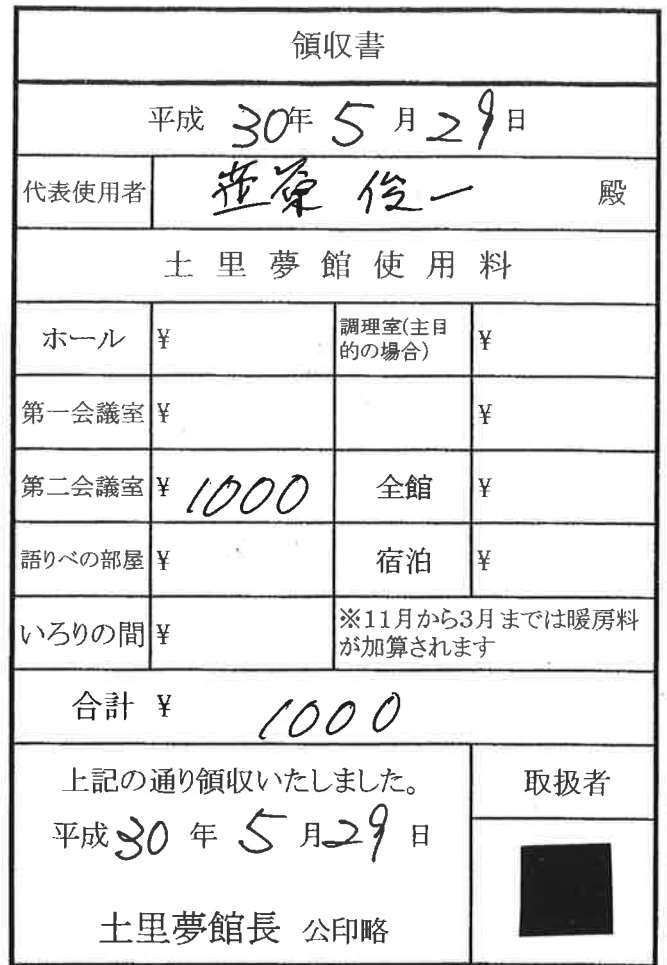 領収書
平成 30年 5 月 29日
代表使用者 俊一 殿
土里夢館使用料
ホール ¥ 調理室(主目的の場合) ¥
第一会議室 ¥ ¥
第二会議室 ¥ 1000 全館 ¥
語りべの部屋 ¥ 宿泊 ¥
いろりの間 ¥ ※11月から3月までは暖房料
が加算されます
合計 ¥ 1000
上記の通り領収いたしました。 取扱者
平成30 年 5 月29 日
土里夢館長 公印略